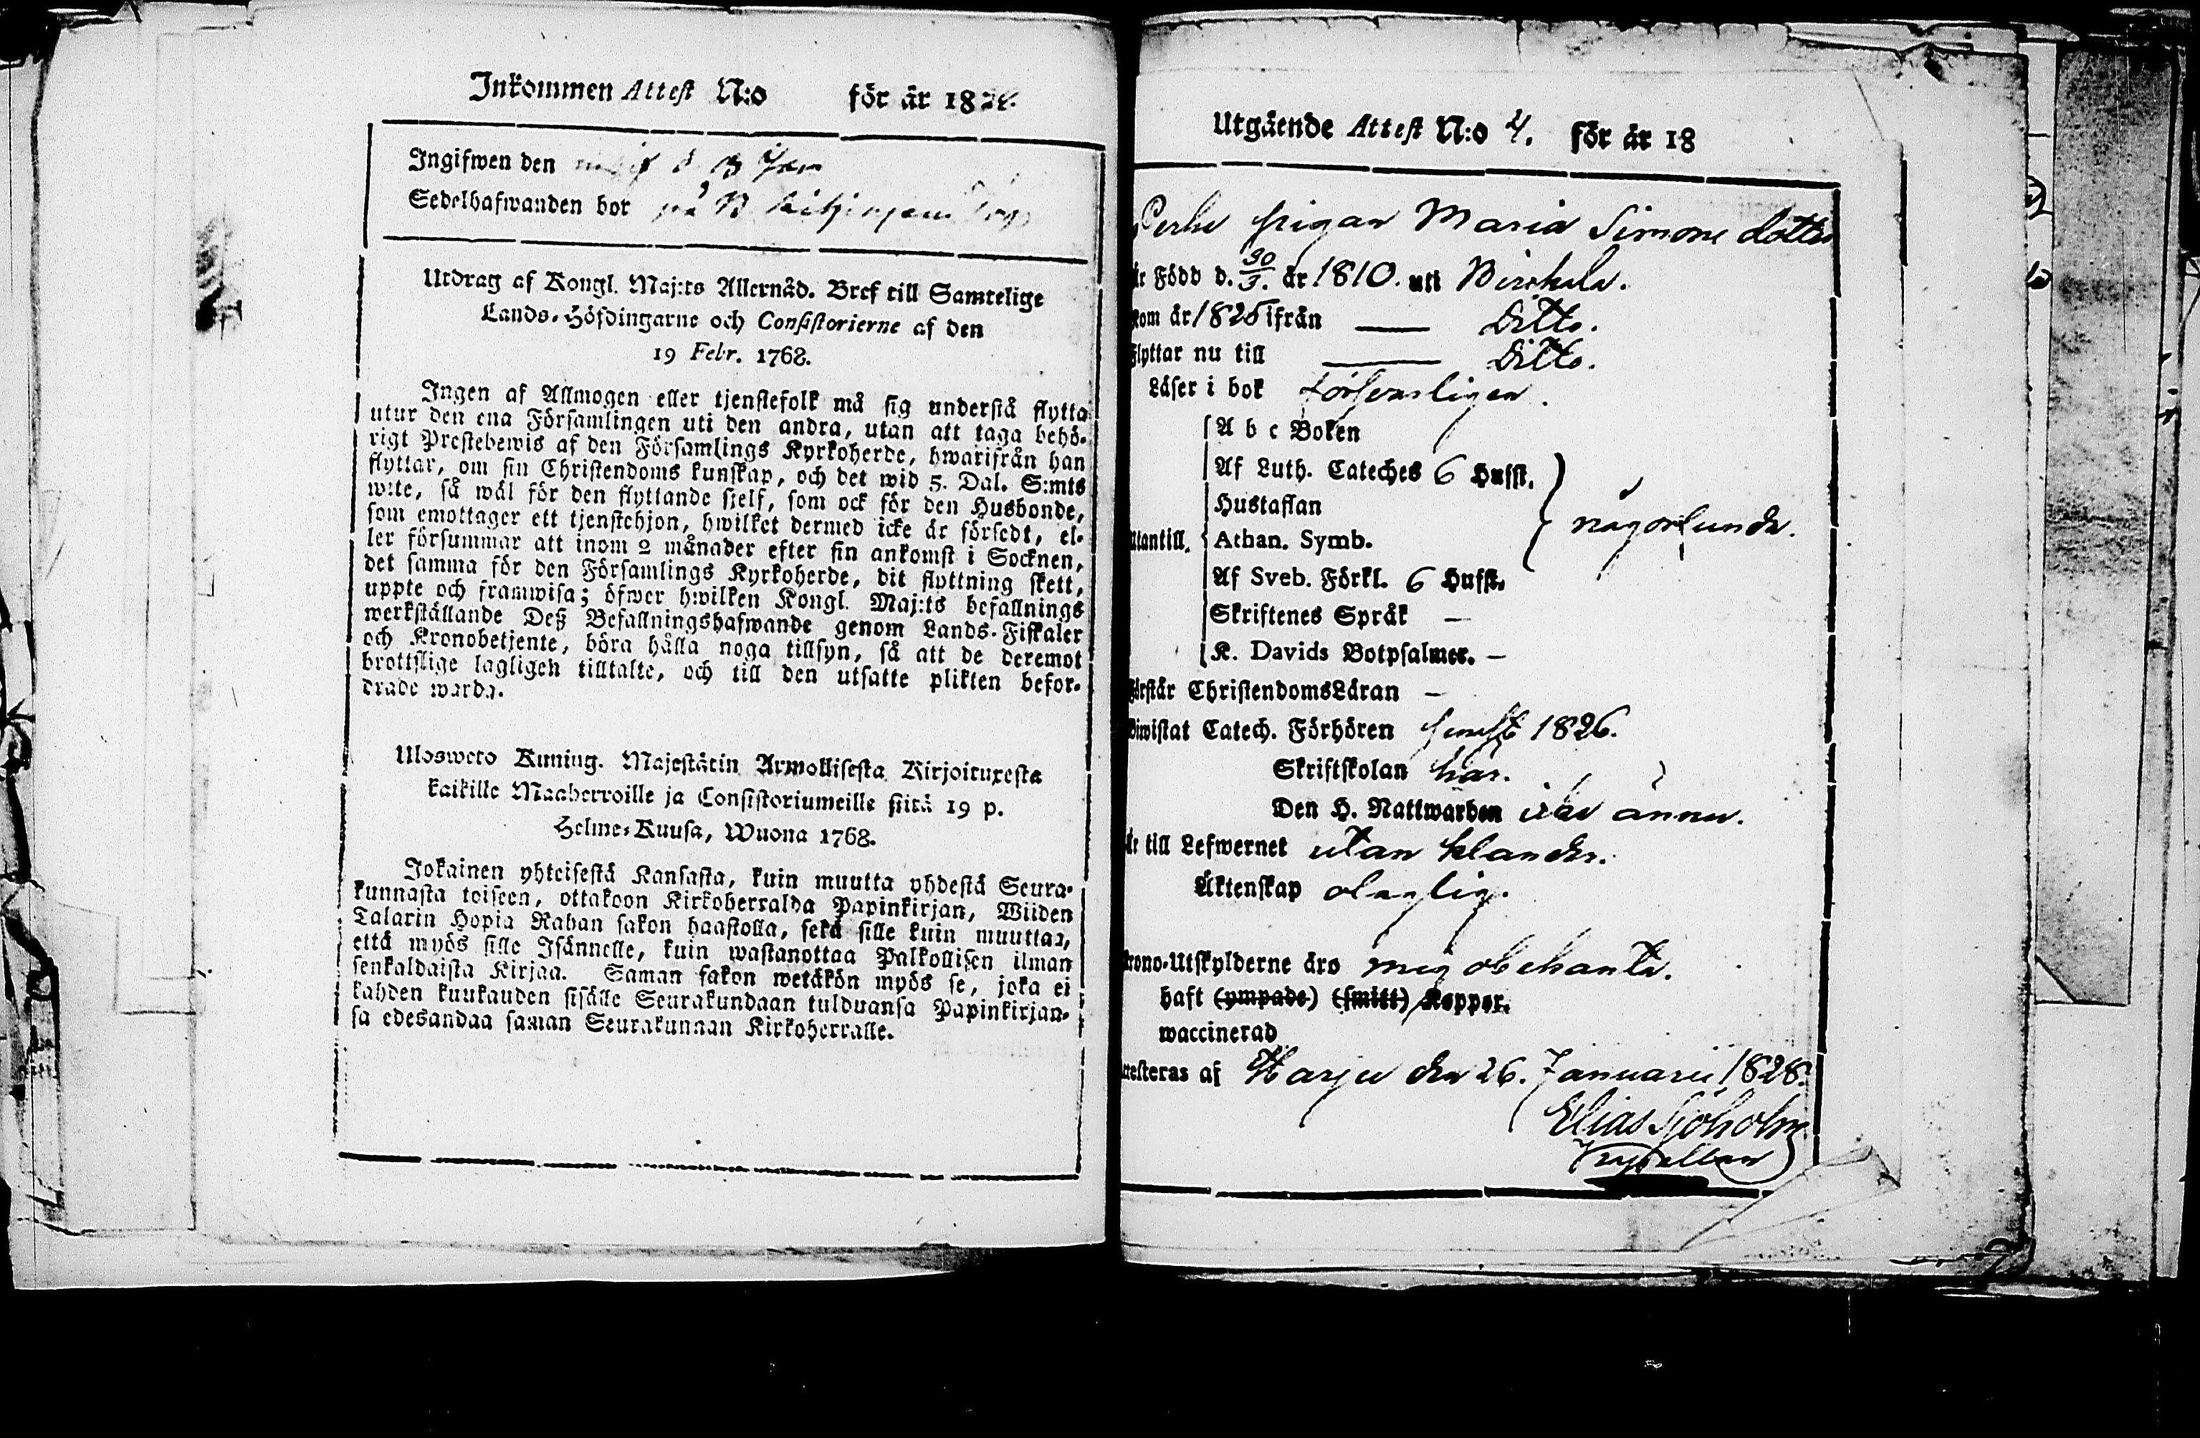 Inkommen Attest N:o för år 182
Ingifwen den
Sedelhafwanden bor på
Utdrag af Kongl. Maj:ts Allernåd. Bref till Samtelige
Lands-Höfdingarne och Consistorierne af den
19 Febr. 1768.
Ingen af Allmogen eller tjenstefolk må sig understå flytta
utur den ena Församlingen uti den andra, utan att taga behö-
rigt Prestebewis af den Församlings Kyrkoherde, hwarifrån han
flyttar, om sin Christendoms kunskap, och det wid 5. Dal. S:mts
wite, så wäl för den flyttande sjelf, som ock för den Husbonde,
som emottager ett tjenstehjon, hwilket dermed icke är försedt, el-
ler försummar att inom 2 månader efter sin ankomst i Socknen,
det samma för den Församlings Kyrkoherde, dit flyttning skett,
uppte och framwisa; öfwer hwilken Kongl. Maj:ts befallnings
werkställande Deß Befallningshafwande genom Lands-Fiskaler
och Kronobetjente, böra hålla noga tillsyn, så att de deremot
brottslige lagligen tilltalte, och till den utsatte plikten befor-
drade warda.
Ulosweto Kuning. Majestätin Armollisesta Kirjoituxesta
kaikille Maaherroille ja Consistoriumeille siitä 19 p.
Helme-Kuusa, Wuona 1768.
Jokainen yhteisestä Kansasta, kuin muutta yhdestä Seura-
kunnasta toiseen, ottakoon Kirkoherralda Papinkirjan, Wiiden
Talarin Hopia Rahan sakon haastolla, sekä sille kuin muuttaa,
että myös sille Isännelle, kuin wastanottaa Palkollisen ilman
senkaldaista Kirjaa. Saman sakon wetäkön myös se, joka ei
kahden kuukauden sisälle Seurakundaan tulduansa Papinkirjan-
sa edesandaa saman Seurakunnan Kirkoherralle.
Utgående Attest N:o 4. för år 18
pigan Maria Simons dotter
är Född d. 30/3. år 1810. uti Birkala.
kom år 1826 ifrån — Ditto.
Flyttar nu till — Ditto.
Läser i bok försvarligen.
A b c Boken
Af Luth. Cateches 6 Hufst.
Hustaflan
någorlunda.
Utantill. Athan. Symb.
Af Sveb. Förkl. 6 Hufst.
Skriftenes Språk —
K. Davids Botpsalmer. —
Förstår ChristendomsLäran —
Biwistat Catech. Förhören 1826.
Skriftskolan här.
Den H. Nattwarden icke ännu.
Är till Lefwernet utan klander.
Äktenskap olaglig.
Krono-Utskylderne äro mig obekanta.
haft (ympade) (smitt) Koppor.
waccinerad
Attesteras af Harju den 26. Januarii 1828.
Elias Sjöholm